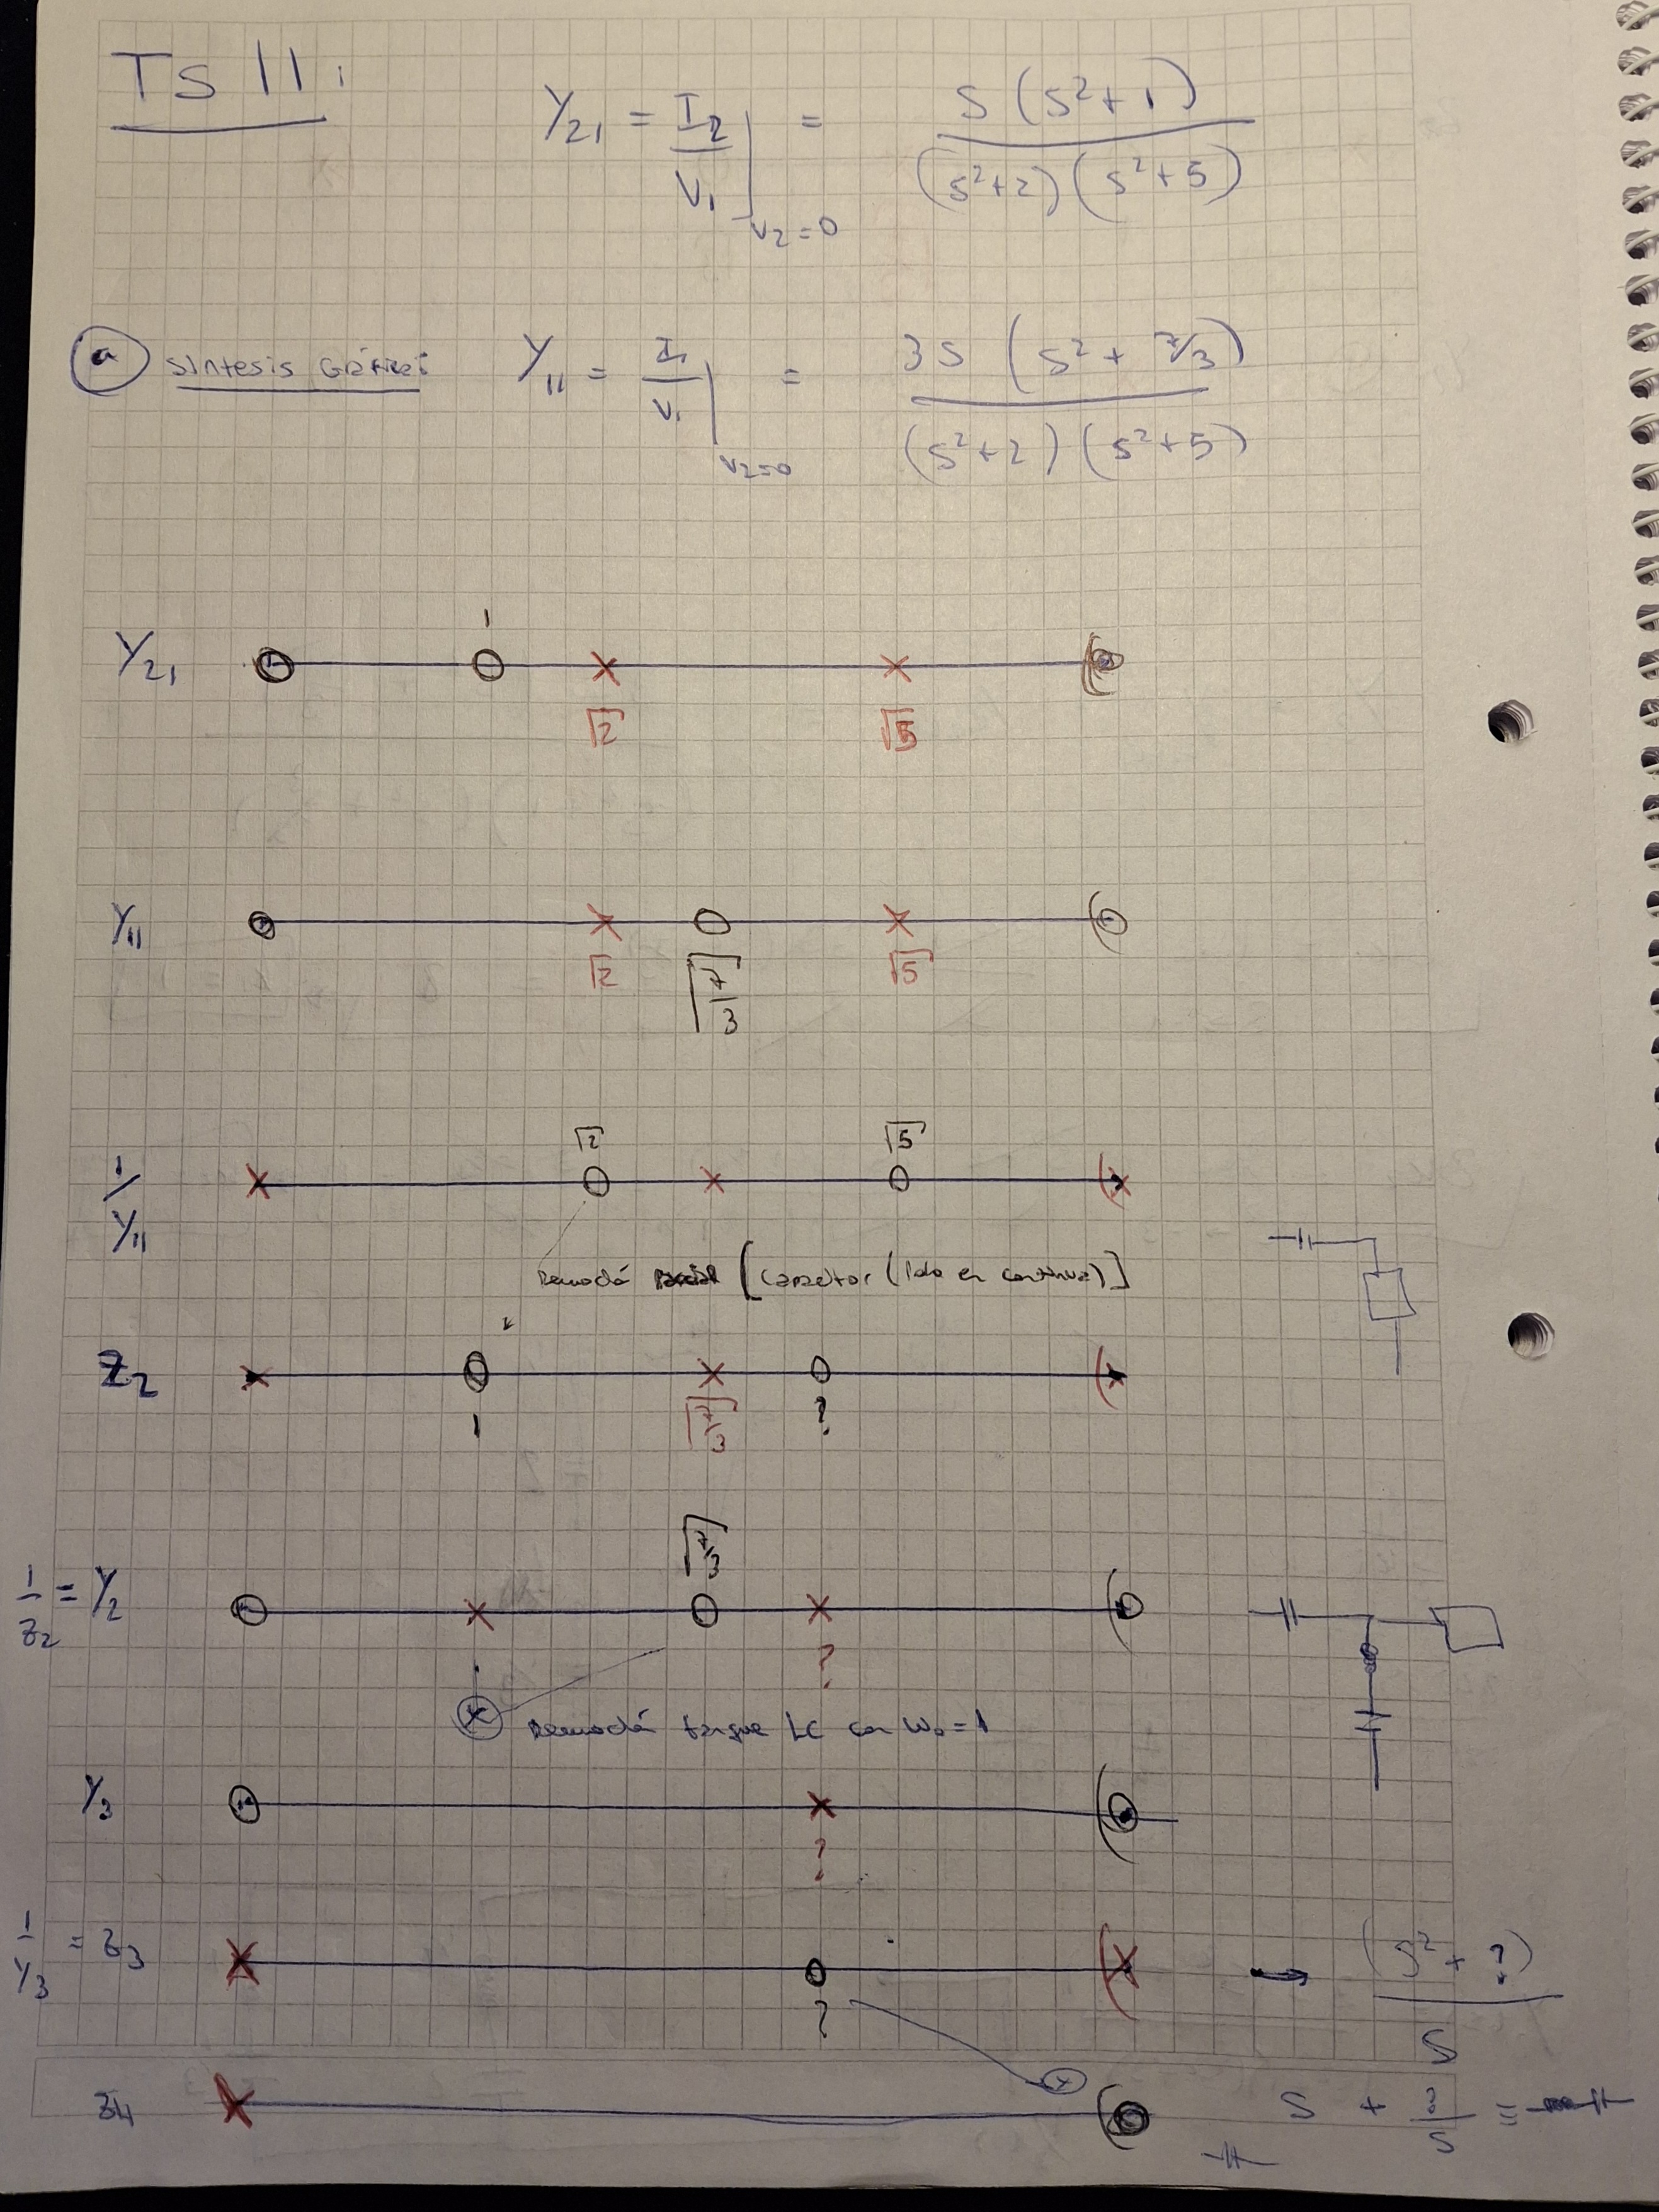 TS 11:
Y21 = I2/V1 |V2=0 = S(S²+1) / (S²+2)(S²+5)
a Síntesis Gráfica: Y11 = I1/V1 |V2=0 = 3S(S²+7/3) / (S²+2)(S²+5)
1
Y21
√2 √5
Y11
√2 √7/3 √5
√2 √5
1/Y11
Remoción [capacitor ( en continua)]
Z2
1 √7/3 ?
√7/3
1/Z2 = Y2
?
Remoción tanque LC con W0 = 1
Y3
?
1/Y3 = Z3 → (S² + ?) / S
?
Z4 S + ?/S =